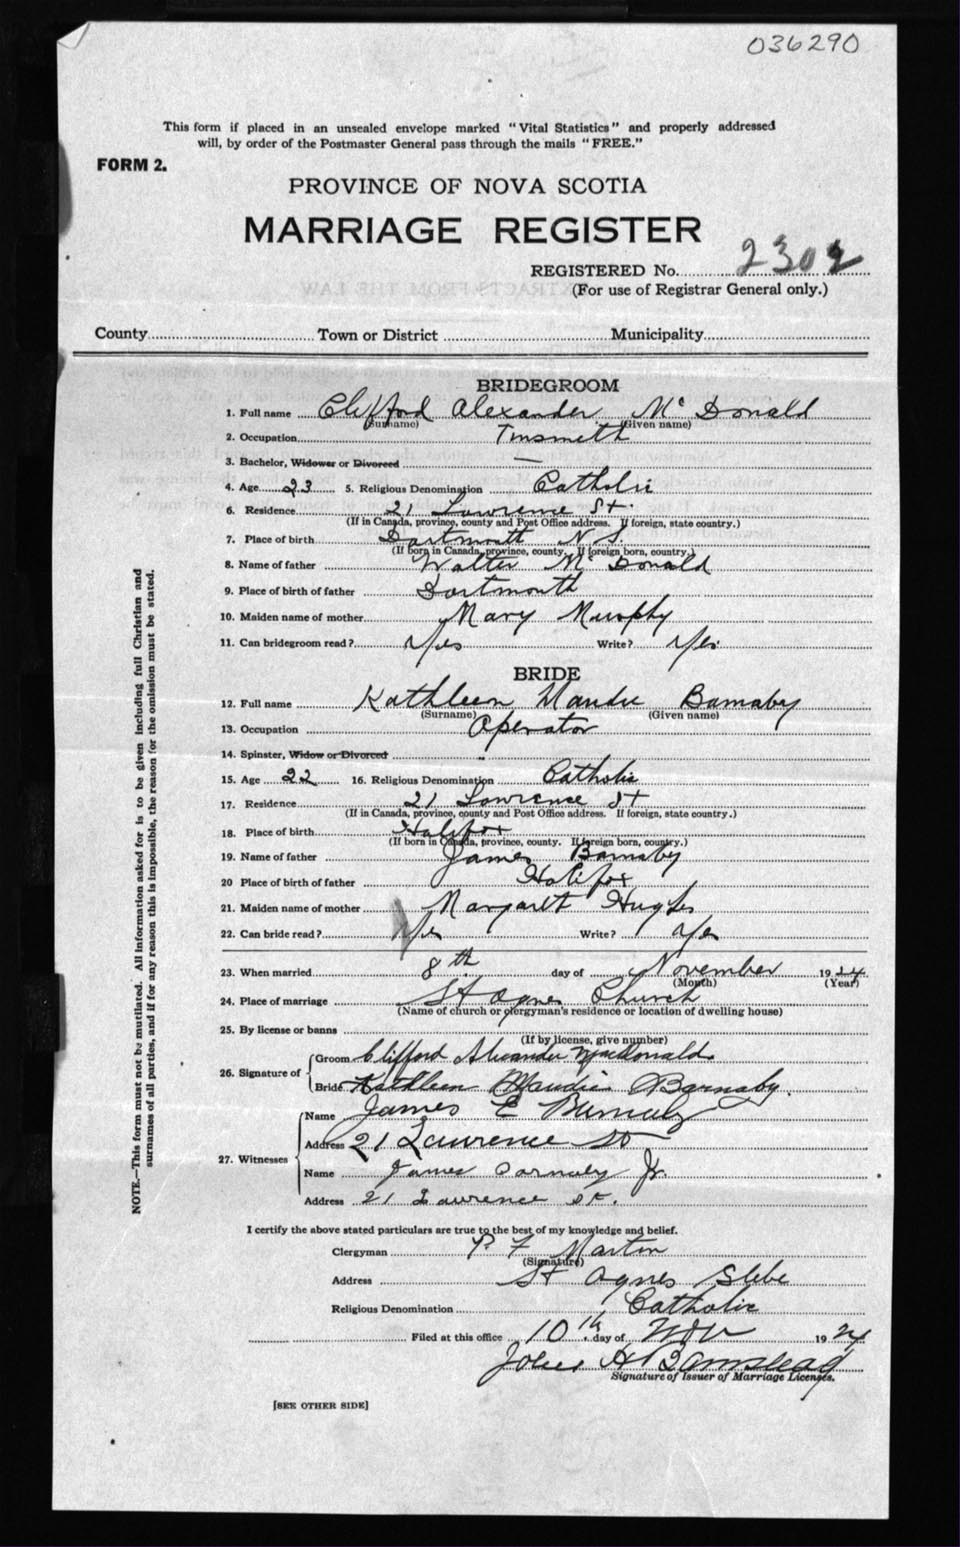 036290
This form if placed in an unsealed envelope marked "Vital Statistics" and properly addressed
will, by order of the Postmaster General pass through the mails "FREE."
FORM 2.
PROVINCE OF NOVA SCOTIA
MARRIAGE REGISTER
REGISTERED No. 2302
(For use of Registrar General only.)
County Town or District Municipality
BRIDEGROOM
1. Full name Clifford Alexander McDonald
(Surname) (Given name)
2. Occupation Tinsmith
3. Bachelor, Widower or Divorced —
4. Age 23 5. Religious Denomination Catholic
6. Residence 21 Lawrence St.
(If in Canada, province, county and Post Office address. If foreign, state country.)
7. Place of birth Dartmouth N.S.
(If born in Canada, province, county. If foreign born, country.)
8. Name of father Walter McDonald
9. Place of birth of father Dartmouth
10. Maiden name of mother Mary Murphy
11. Can bridegroom read? Yes Write? Yes
BRIDE
12. Full name Kathleen Maudie Barnaby
(Surname) (Given name)
13. Occupation Operator
14. Spinster, Widow or Divorced "
15. Age 22 16. Religious Denomination Catholic
17. Residence 21 Lawrence St
(If in Canada, province, county and Post Office address. If foreign, state country.)
18. Place of birth Halifax
(If born in Canada, province, county. If foreign born, country.)
19. Name of father James Barnaby
20 Place of birth of father Halifax
21. Maiden name of mother Margaret Hughes
22. Can bride read? Yes Write? Yes
23. When married 8th day of November 1924
(Month) (Year)
24. Place of marriage St Agnes Church
(Name of church or clergyman's residence or location of dwelling house)
25. By license or banns
(If by license, give number)
26. Signature of
Groom Clifford Alexander MacDonald
Bride Kathleen Maudie Barnaby.
27. Witnesses
Name James E Barnaby
Address 21 Lawrence St
Name James Barnaby Jr.
Address 21 Lawrence St.
I certify the above stated particulars are true to the best of my knowledge and belief.
Clergyman P. F Martin
(Signature)
Address St Agnes Glebe
Religious Denomination Catholic
Filed at this office 10th day of Nov 1924
H Barnstead
Signature of Issuer of Marriage Licenses.
[SEE OTHER SIDE]
NOTE.—This form must not be mutilated. All information asked for is to be given including full Christian and
surnames of all parties, and if for any reason this is impossible, the reason for the omission must be stated.